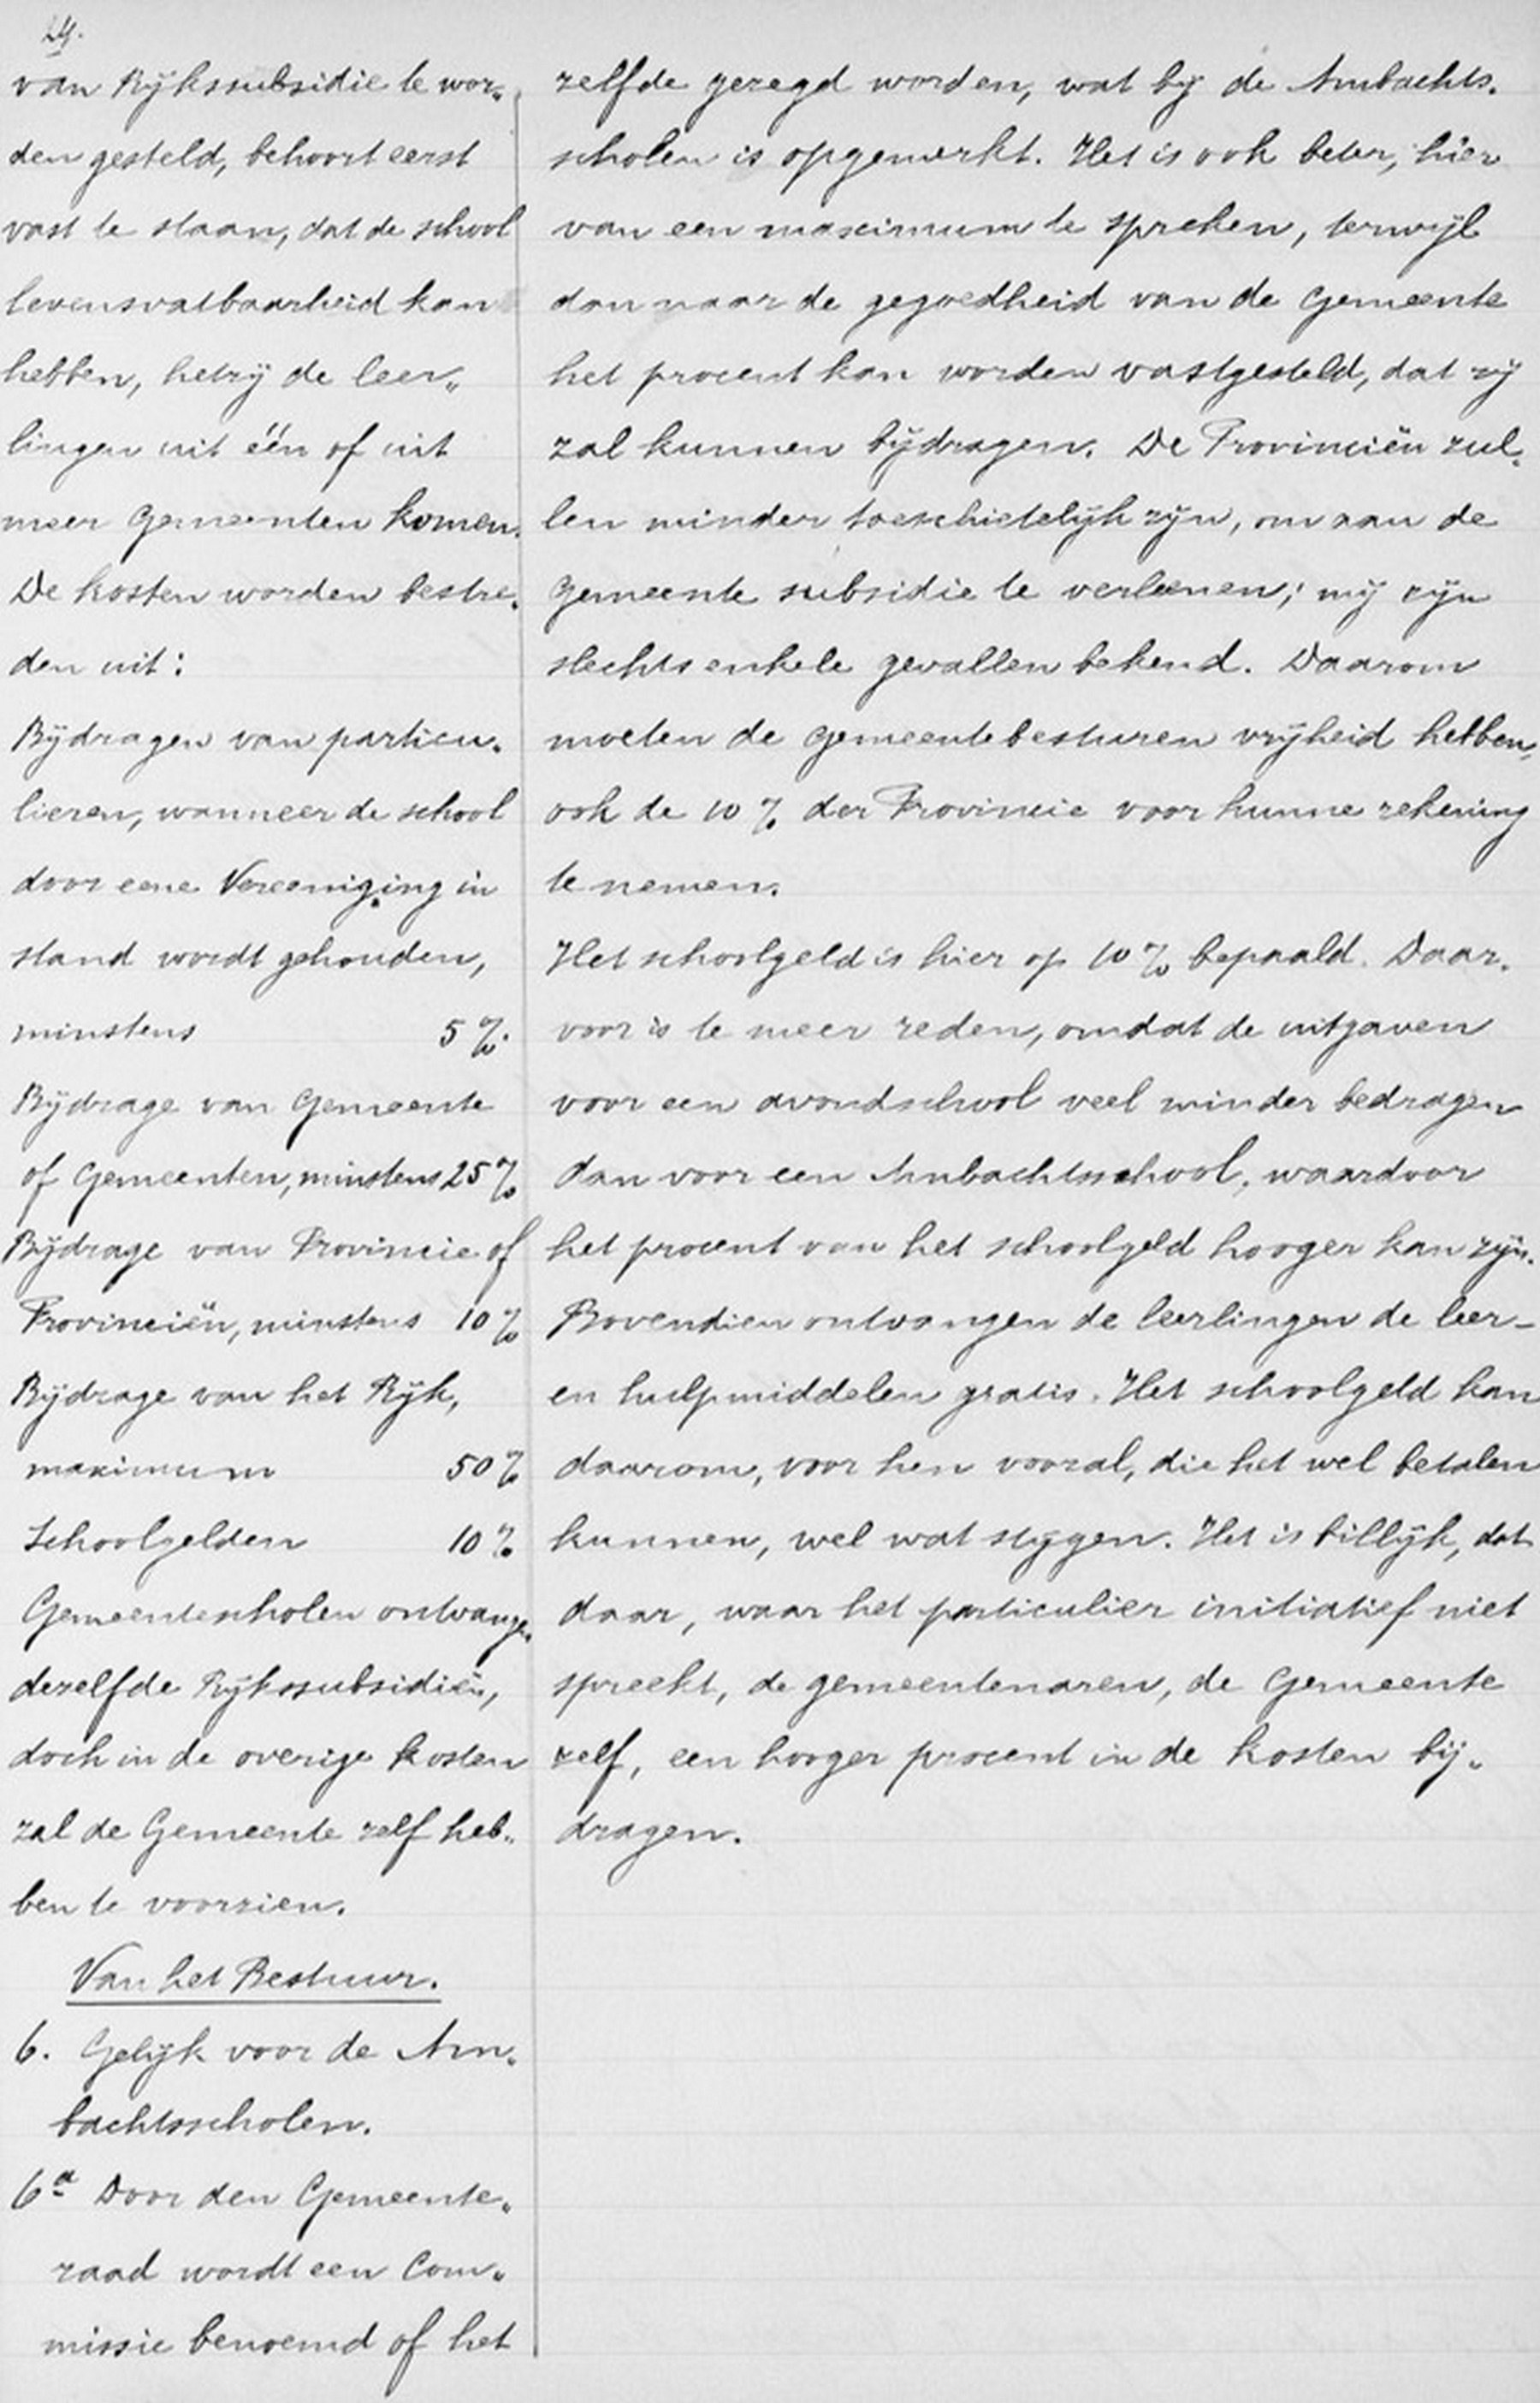 24.
van Rijkssubsidie te wor„
den gesteld, behoort eerst
vast te staan, dat de school
levensvatbaarheid kan
hebben, hetzij de leer„
lingen uit één of uit
meer Gemeenten komen.
De kosten worden bestre„
den uit:
Bijdragen van particu„
lieren, wanneer de school
door eene Vereeniging in
stand wordt gehouden,
minstens 5 %.
Bijdrage van Gemeente
of Gemeenten, minstens 25 %
Bijdrage van Provincie of
Provinciën, minstens 10 %
Bijdrage van het Rijk,
maximum 50 %
Schoolgelden 10 %
Gemeentescholen ontvangen
dezelfde Rijkssubsidiën,
doch in de overige kosten
zal de Gemeente zelf heb„
ben te voorzien.
Van het Bestuur.
6. Gelijk voor de Am„
bachtsscholen.
6a Door den Gemeente„
raad wordt een Com„
missie benoemd of het
zelfde gezegd worden, wat bij de Ambachts„
scholen is opgemerkt. Het is ook beter, hier
van een maximum te spreken, terwijl
dan naar de gegoedheid van de Gemeente
het procent kan worden vastgesteld, dat zij
zal kunnen bijdragen. De Provinciën zul„
len minder toeschietelijk zijn, om aan de
Gemeente subsidie te verleenen; mij zijn
slechts enkele gevallen bekend. Daarom
moeten de Gemeentebesturen vrijheid hebben,
ook de 10 % der Provincie voor hunne rekening
te nemen.
Het schoolgeld is hier op 10 % bepaald. Daar„
voor is te meer reden, omdat de uitgaven
voor een avondschool veel minder bedragen
dan voor een Ambachtsschool, waardoor
het procent van het schoolgeld hooger kan zijn.
Bovendien ontvangen de leerlingen de leer-
en hulpmiddelen gratis. Het schoolgeld kan
daarom, voor hen vooral, die het wel betalen
kunnen, wel wat stijgen. Het is billijk, dat
daar, waar het particulier initiatief niet
spreekt, de gemeentenaren, de Gemeente
zelf, een hooger procent in de kosten bij„
dragen.